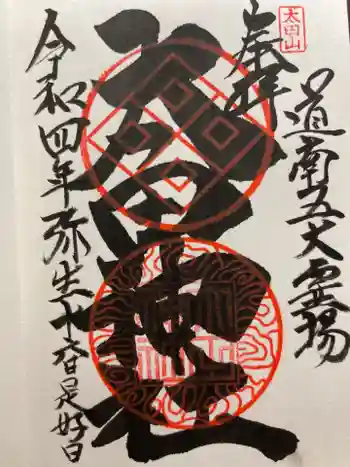 太田山
奉拝
道南五大霊場
太田神社
令和四年弥生十六日是好日